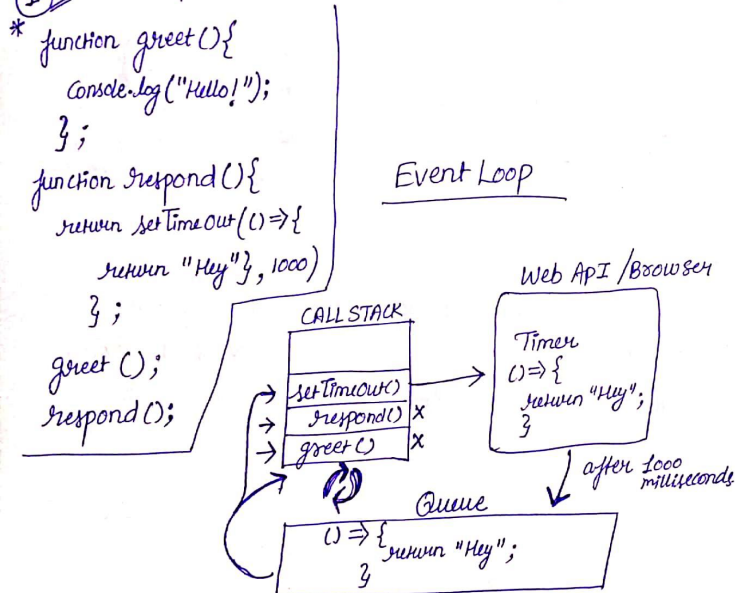 * function greet(){
console.log("Hello!");
};
function respond(){
return setTimeout(()=>{
return "Hey"}, 1000)
};
greet();
respond();
Event Loop
CALL STACK
setTimeout()
respond() x
greet() x
Web API / Browser
Timer
()=>{
return "Hey";
}
after 1000
milliseconds
Queue
()=>{
return "Hey";
}